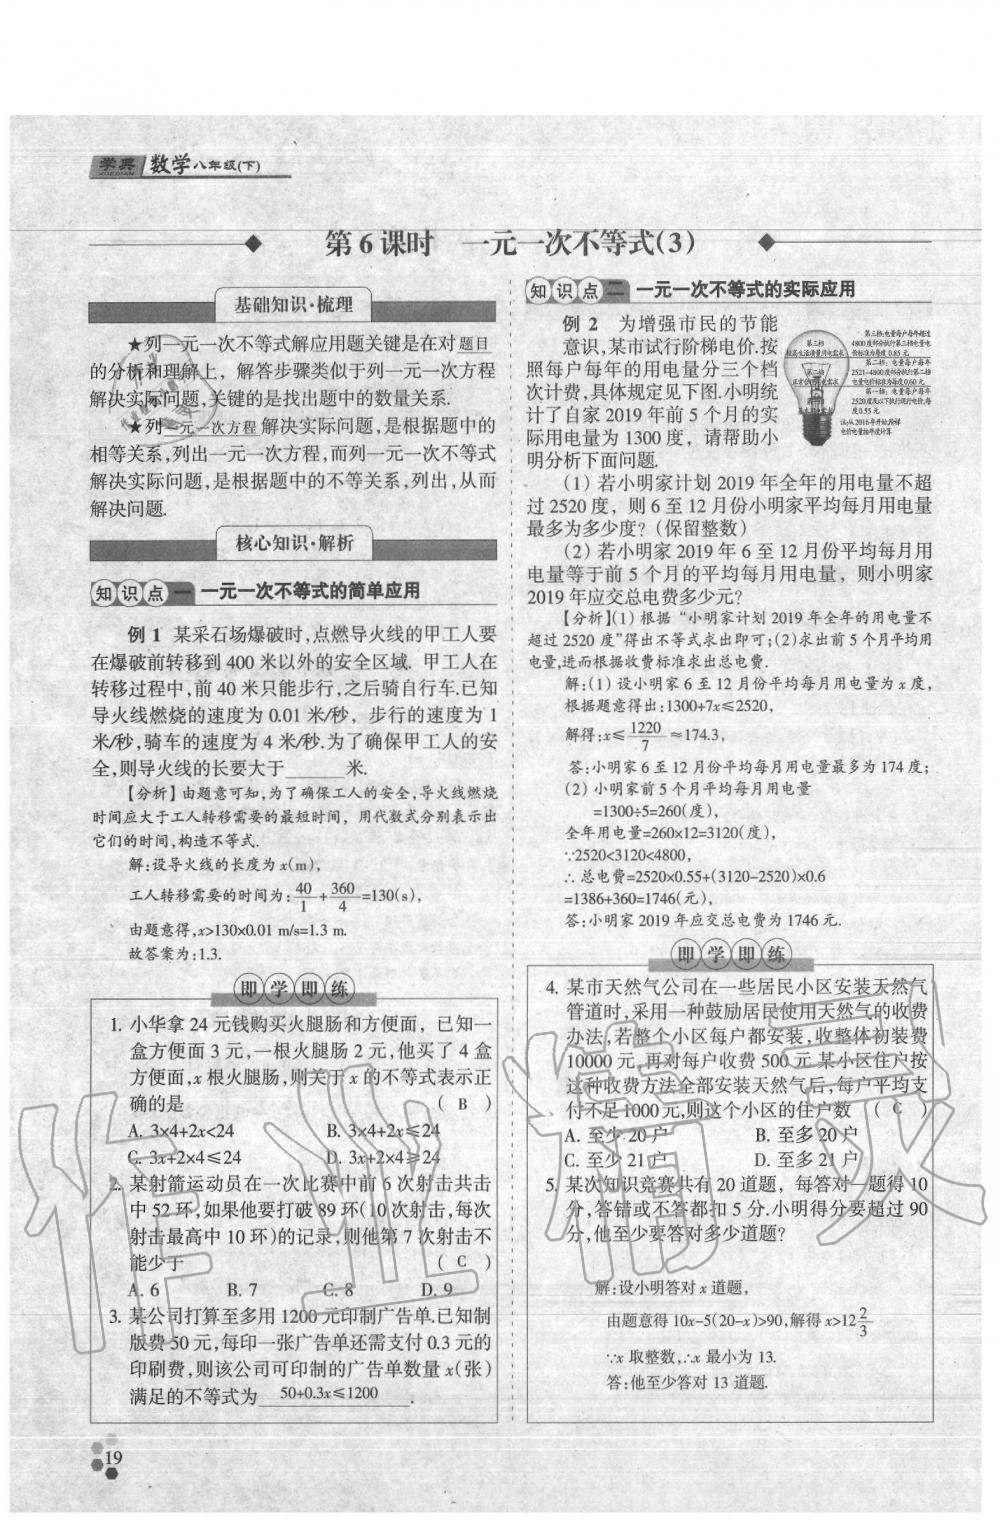 学典 数学八年级(下)
XUEDIAN
第6课时 一元一次不等式(3)
基础知识·梳理
★列一元一次不等式解应用题关键是在对 题目
的分析和理解上，解答步骤类似于列一元一次方程
解决实际问题,关键的是找出题中的数量关系.
★列一元一次方程解决实际问题,是根据题中的
相等关系,列出一元一次方程,而列一元一次不等式
解决实际问题,是根据题中的不等关系,列出,从而
解决问题.
核心知识·解析
知识点一 一元一次不等式的简单应用
例1 某采石场爆破时,点燃导火线的甲工人要
在爆破前转移到 400 米以外的安全区域. 甲工人在
转移过程中,前 40 米只能步行,之后骑自行车.已知
导火线燃烧的速度为 0.01 米/秒，步行的速度为 1
米/秒,骑车的速度为 4 米/秒.为了确保甲工人的安
全,则导火线的长要大于______米.
【分析】由题意可知,为了确保工人的安全,导火线燃烧
时间应大于工人转移需要的最短时间，用代数式分别表示出
它们的时间,构造不等式.
解:设导火线的长度为 x(m),
工人转移需要的时间为: 40/1 + 360/4 =130(s),
由题意得,x>130×0.01 m/s=1.3 m.
故答案为:1.3.
即学即练
1. 小华拿 24 元钱购买火腿肠和方便面，已知一
盒方便面 3 元,一根火腿肠 2 元,他买了 4 盒
方便面,x 根火腿肠,则关于 x 的不等式表示正
确的是 ( B )
A. 3×4+2x<24 B. 3×4+2x≤24
C. 3x+2×4≤24 D. 3x+2×4≥24
2. 某射箭运动员在一次比赛中前 6 次射击共击
中 52 环,如果他要打破 89 环(10 次射击,每次
射击最高中 10 环)的记录,则他第 7 次射击不
能少于 ( C )
A. 6 B. 7 C. 8 D. 9
3. 某公司打算至多用 1200 元印制广告单.已知制
版费 50 元,每印一张广告单还需支付 0.3 元的
印刷费,则该公司可印制的广告单数量 x(张)
满足的不等式为 50+0.3x≤1200 .
19
知识点二 一元一次不等式的实际应用
例2 为增强市民的节能
意识,某市试行阶梯电价.按
照每户每年的用电量分三个档
次计费,具体规定见下图.小明统
计了自家 2019 年前 5 个月的实
际用电量为 1300 度，请帮助小
明分析下面问题.
第三档
第二档
第三档:电量每户每年超过
4800度部分执行第三档电量电
价标准为每度0.85元.
第二档：电量每户每年
2521-4800度部分执行第二档
电量电价标准为每度0.60元.
第一档：电量每户每年
2520度及以下执行现行电价,每
度0.55元.
（1）若小明家计划 2019 年全年的用电量不超
过 2520 度，则 6 至 12 月份小明家平均每月用电量
最多为多少度?（保留整数）
（2）若小明家 2019 年 6 至 12 月份平均每月用
电量等于前 5 个月的平均每月用电量，则小明家
2019 年应交总电费多少元?
【分析】(1) 根据“小明家计划 2019 年全年的用电量不
超过 2520 度”得出不等式求出即可;(2)求出前 5 个月平均用
电量,进而根据收费标准求出总电费.
解:(1) 设小明家 6 至 12 月份平均每月用电量为 x 度，
根据题意得出:1300+7x≤2520,
解得:x≤ 1220/7 ≈174.3,
答:小明家 6 至 12 月份平均每月用电量最多为 174 度;
(2) 小明家前 5 个月平均每月用电量
=1300÷5=260(度),
全年用电量=260×12=3120(度),
∵2520<3120<4800,
∴总电费=2520×0.55+(3120-2520)×0.6
=1386+360=1746(元),
答:小明家 2019 年应交总电费为 1746 元.
即学即练
4. 某市天然气公司在一些居民小区安装天然气
管道时,采用一种鼓励居民使用天然气的收费
办法,若整个小区每户都安装,收整体初装费
10000 元,再对每户收费 500 元.某小区住户按
这种收费方法全部安装天然气后,每户平均支
付不足1000元,则这个小区的住户数 ( C )
A. 至少 20 户 B. 至多 20 户
C. 至少 21 户 D. 至多 21 户
5. 某次知识竞赛共有 20 道题，每答对一题得 10
分,答错或不答都扣 5 分.小明得分要超过 90
分,他至少要答对多少道题?
解:设小明答对 x 道题,
由题意得 10x-5(20-x)>90,解得 x>12 2/3
∵x 取整数,∴x 最小为 13.
答:他至少答对 13 道题.
作业精灵